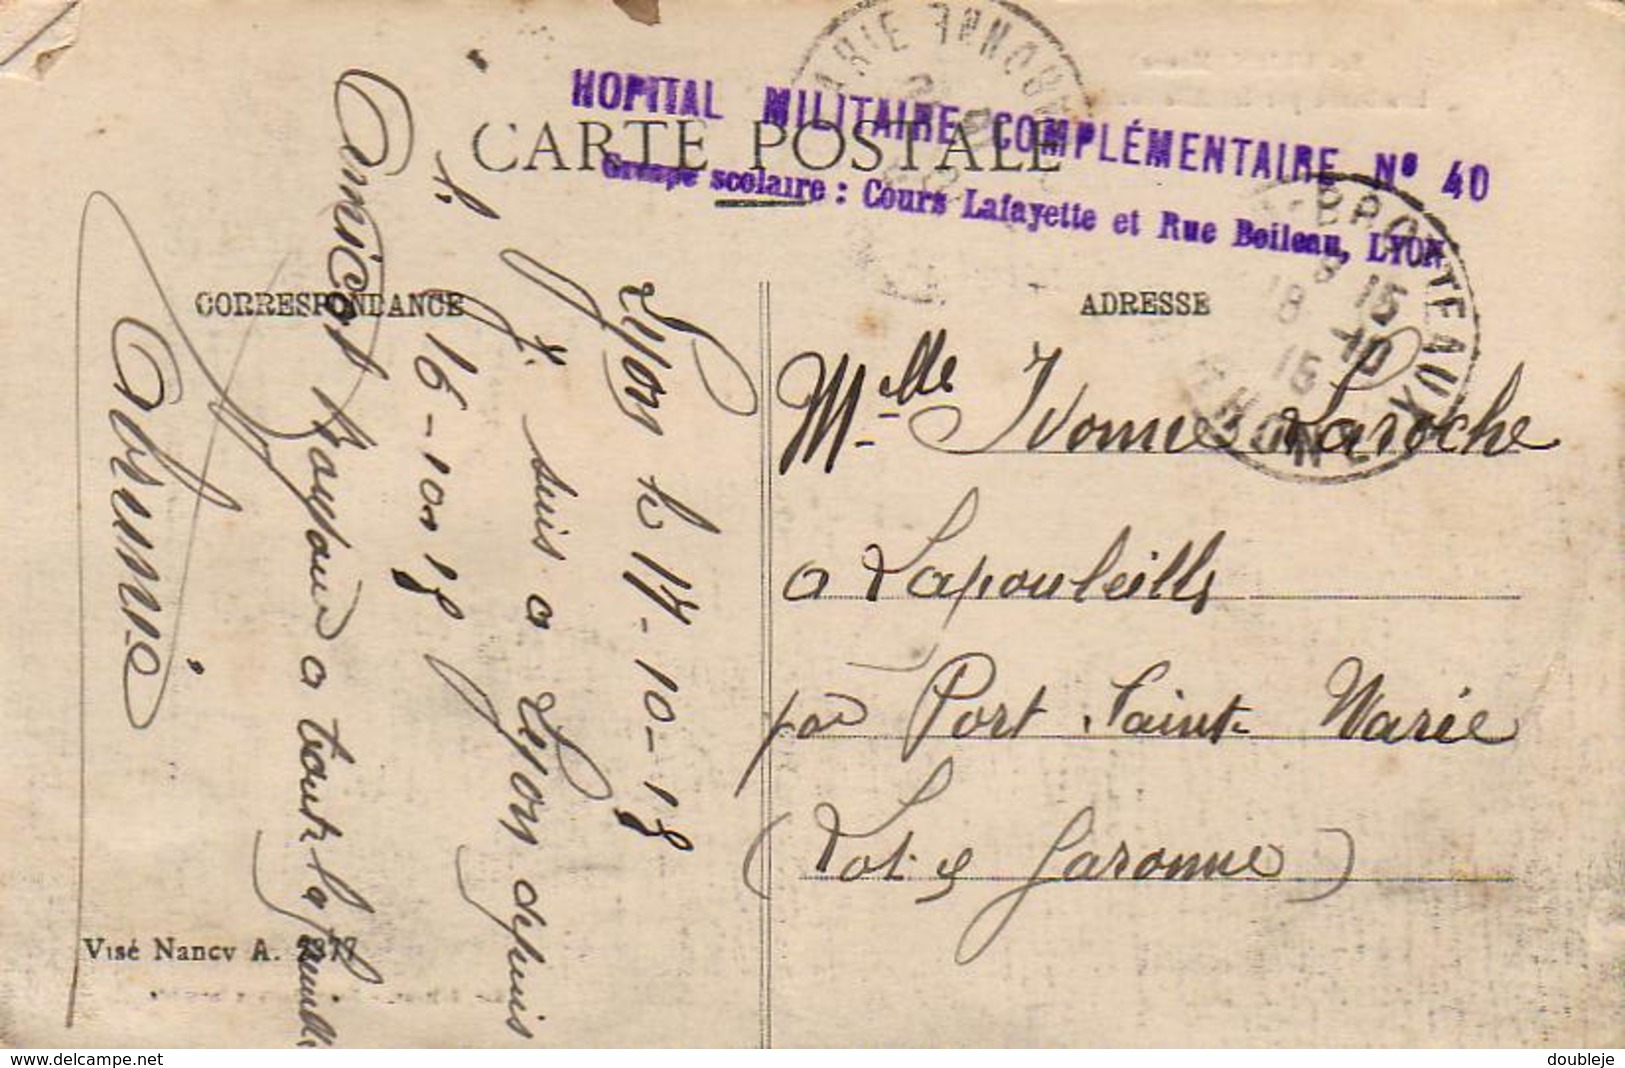 HOPITAL MILITAIRE COMPLÉMENTAIRE Nº 40
Groupe scolaire : Cours Lafayette et Rue Boileau, LYON
CARTE POSTALE
CORRESPONDANCE
ADRESSE
BROTTEAUX
8 15
18 10
15
RHONE
Lyon le 17-10-15
Je suis a Lyon depuis
le 16-10-15
Amical Bonjour a toute la famille
Mlle Ivonne Laroche
a Lapouleille
par Port Sainte Marie
(Lot et Garonne)
Visé Nancy A. 2377
www.delcampe.net
doubleje